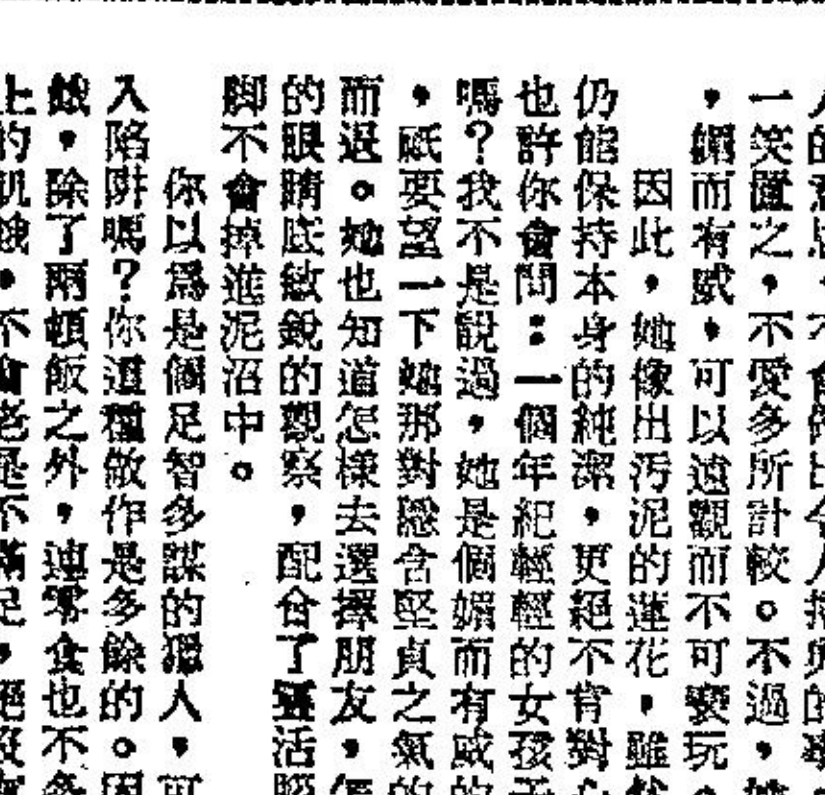 一笑置之,不愛多所計較。不過,她
,媚而有威,可以遠觀而不可褻玩。
因此,她像出污泥的蓮花,雖然
仍能保持本身的純潔,更絕不肯對
也許你會問:一個年紀輕輕的女孩子
嗎?我不是說過,她是個媚而有威的
,祇要望一下她那對隱含堅貞之氣的
而退。她也知道怎樣去選擇朋友,怎
的眼睛底敏銳的觀察,配合了靈活
脚不會掉進泥沼中。
你以爲是個足智多謀的獵人,可
入陷阱嗎?你這種做作是多餘的。因
餓,除了兩頓飯之外,連零食也不多
上的飢餓,不會老是不滿足,絕沒